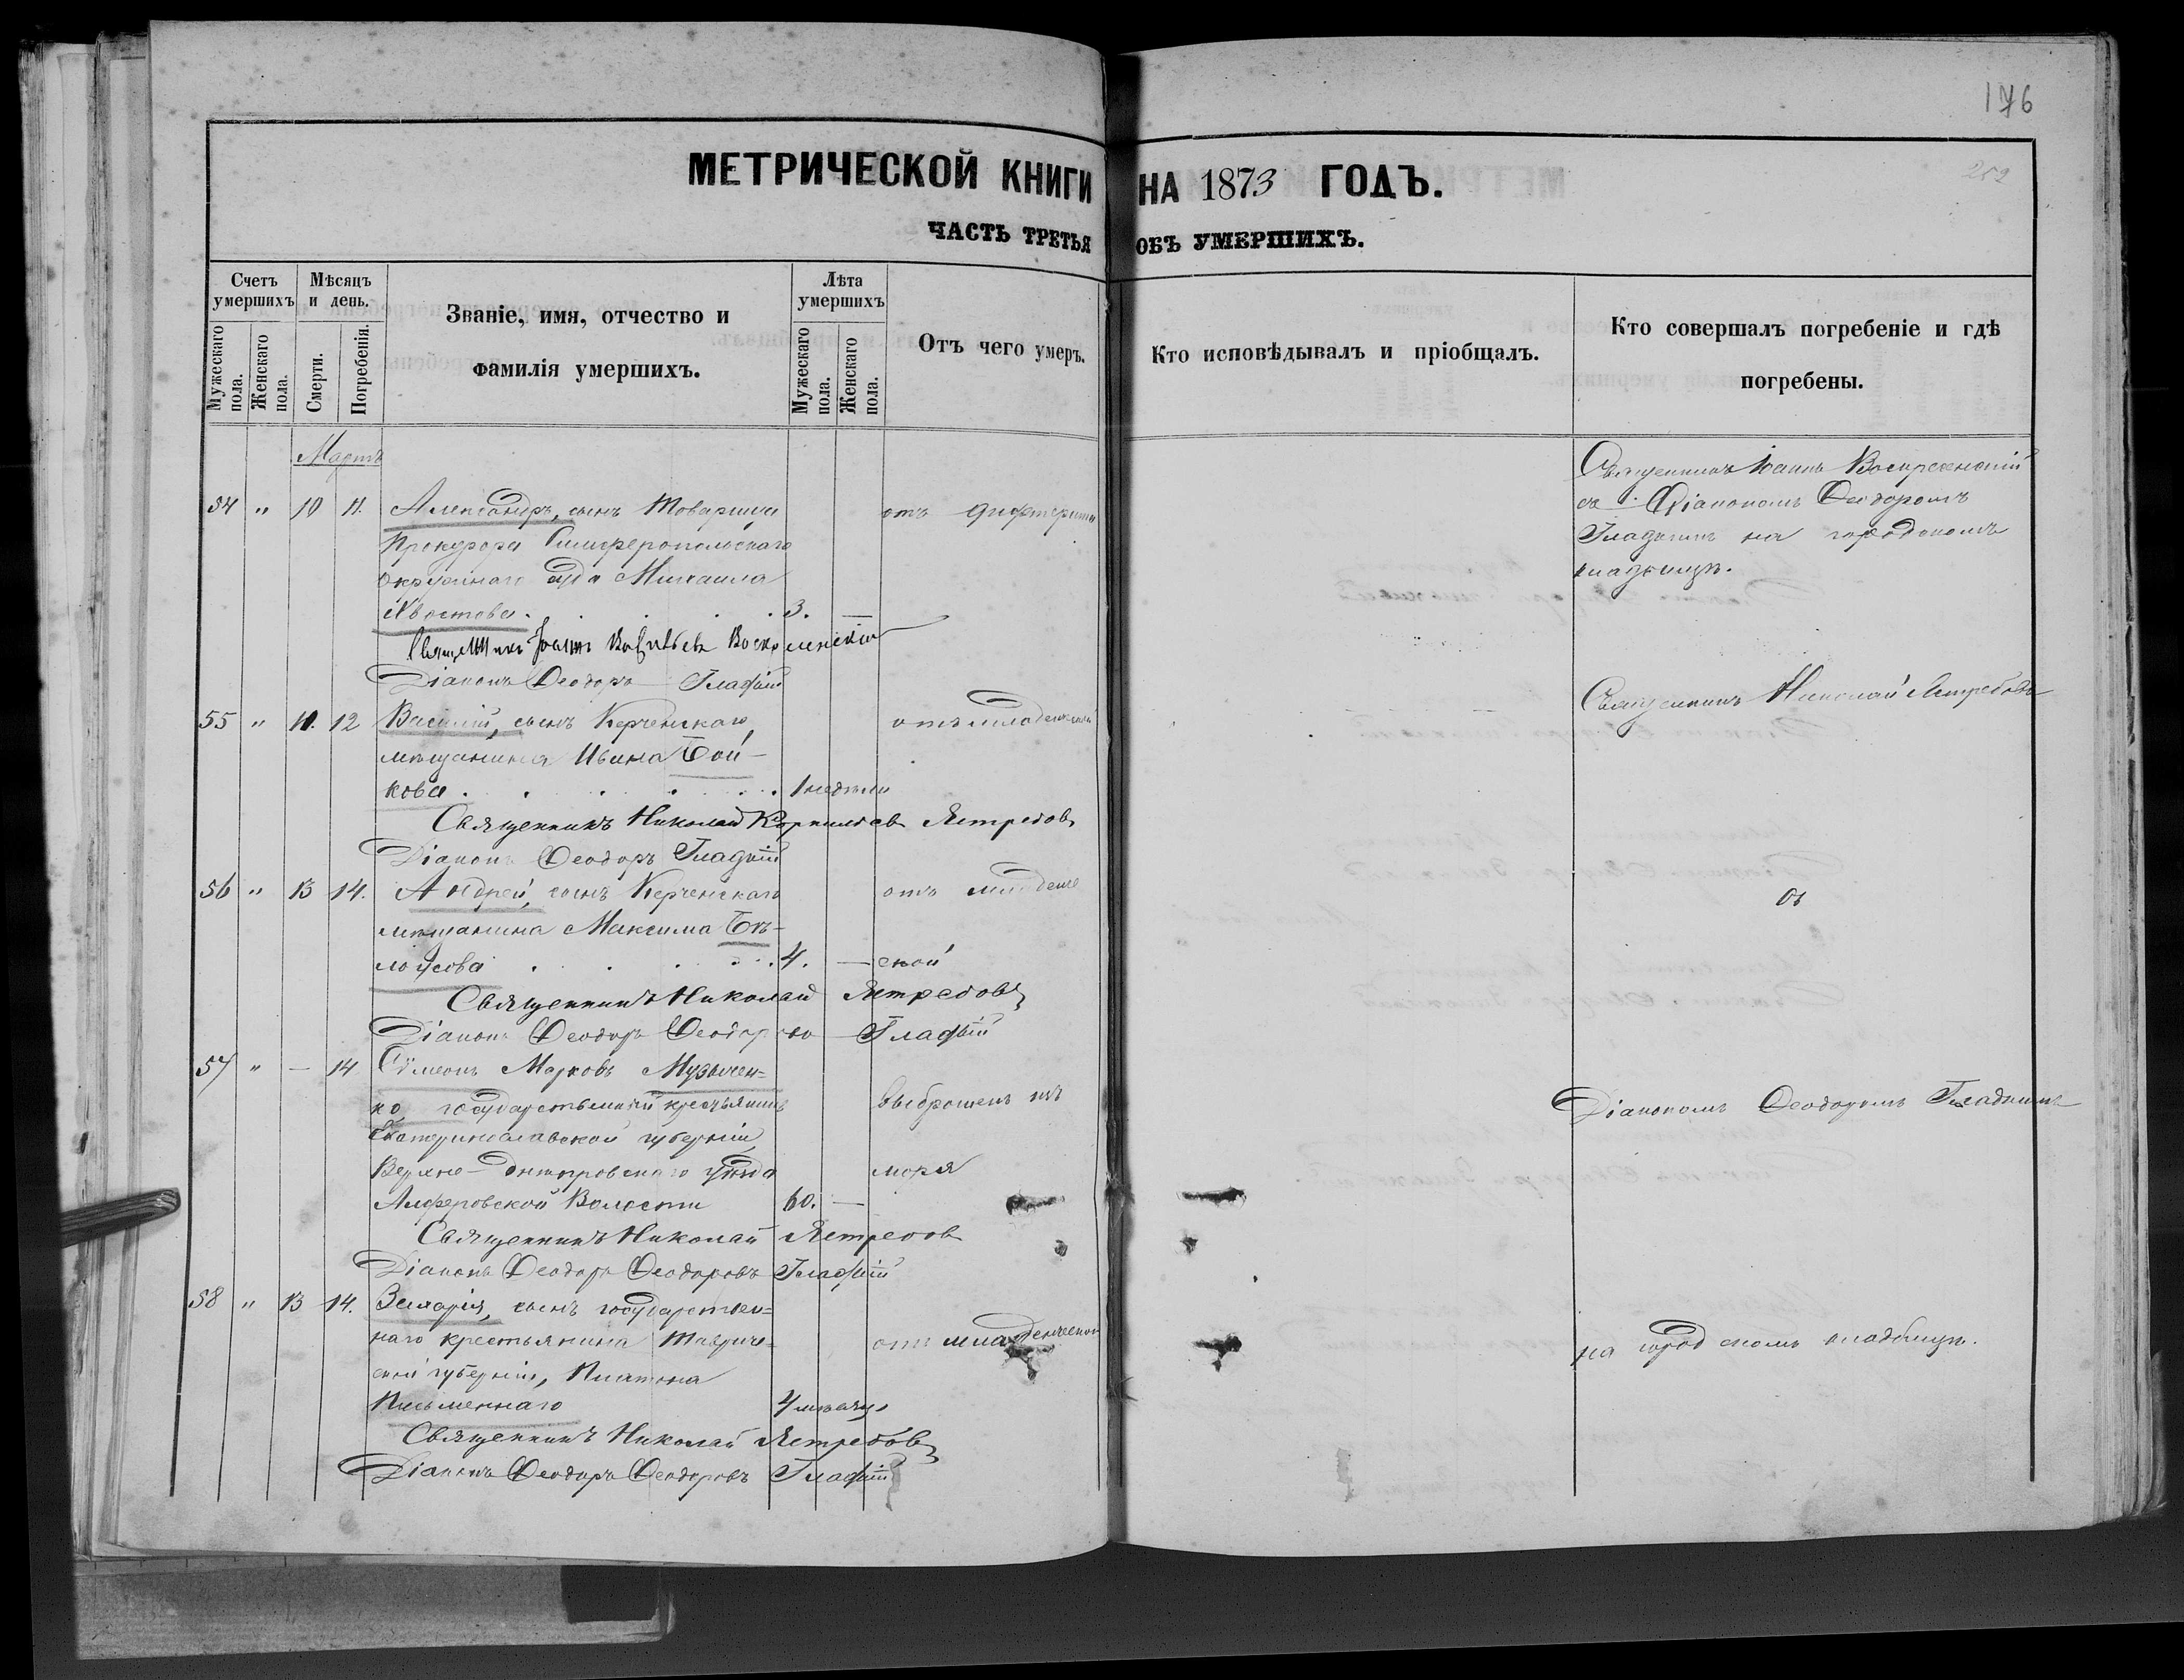 176
252
МЕТРИЧЕСКОЙ КНИГИ НА 1873 ГОДЪ.
ЧАСТЬ ТРЕТЬЯ ОБЪ УМЕРШИХЪ.
Счетъ умершихъ
Мужескаго пола.
Женскаго пола.
Мѣсяцъ и день.
Смерти.
Погребенія.
Званіе, имя, отчество и
фамилія умершихъ.
Лѣта умершихъ
Мужескаго пола.
Женскаго пола.
Отъ чего умеръ.
Кто исповѣдывалъ и пріобщалъ.
Кто совершалъ погребеніе и гдѣ
погребены.
Мартъ
54 " 10 11. Александръ, сынъ Товарища отъ дифтерита
Прокурора Симферопольскаго
Окружнаго суда Михаила
Хвостова. 3. —
Священникъ Іоаннъ Воскресенскій
съ Діакономъ Ѳеодоромъ
Гладкимъ на городскомъ
кладбищѣ.
Священникъ Іоаннъ Васильевъ Воскресенскій
Діаконъ Ѳеодоръ Гладкій
55 " 11. 12 Василій, сынъ Керченскаго отъ младенческой
мѣщанина Ивана Бой-
кова 1 недѣли
Священникъ Николай Ястребовъ
Священникъ Николай Корнильев Ястребовъ
Діаконъ Ѳеодоръ Гладкій
56 " 13 14. Андрей, сынъ Керченскаго отъ младенче
мѣщанина Максима Бѣ-
лоусова 4. — ской
съ
Священникъ Николай Ястребовъ
Діаконъ Ѳеодоръ Гладкій
57 " — 14 Сѵмеонъ Марковъ Музычен=
ко, государственный крестьянинъ выброшенъ изъ
Екатеринославской губерніи,
Верхне-Днѣпровскаго уѣзда моря
Алферовской Волости 60. —
Діакономъ Ѳеодоромъ Гладкимъ
Священникъ Николай Ястребовъ
Діаконъ Ѳеодоръ Ѳеодоровъ Гладкій
58 " 13 14. Захарія, сынъ государствен=
наго крестьянина Тавриче= отъ младенческой
ской губерніи, Платона
Письменнаго 4 мѣсяц.
на городскомъ кладбищѣ.
Священникъ Николай Ястребовъ
Діаконъ Ѳеодоръ Ѳеодоровъ Гладкій